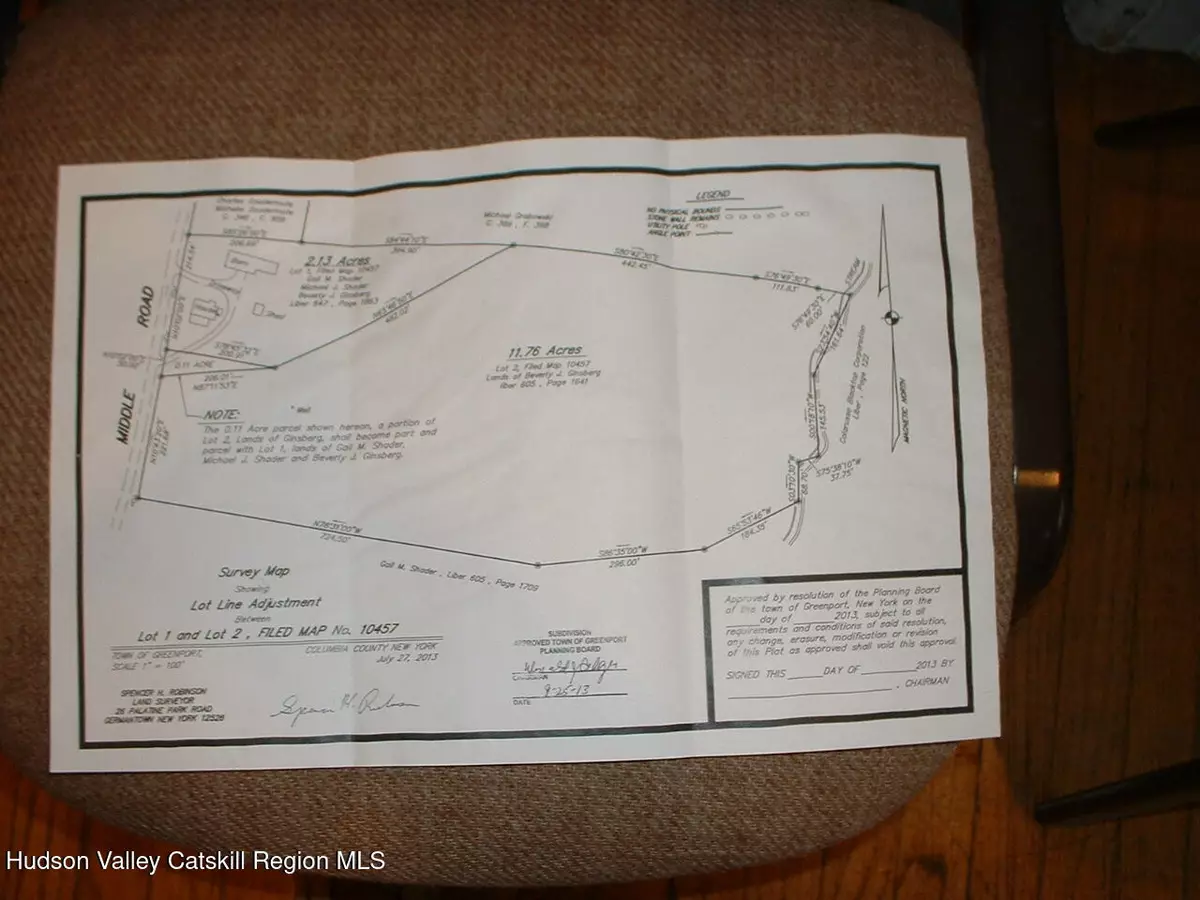 LEGEND
NO PHYSICAL BOUNDS
STONE WALL REMAINS
UTILITY POLE
ANGLE POINT
Michael Grabowski
C. 398 , F. 398
2.13 Acres
Lot 1, Filed Map 10457
Gail M. Shader
Michael J. Shader
Beverly J. Ginsberg
Barn
Shed
STREAM
442.45'
111.83'
60.00'
ROAD
MIDDLE
0.11 ACRE
206.01'
N67°11'53"E
11.76 Acres
Lot 2, Filed Map 10457
Lands of Beverly J. Ginsberg
liber 605 , Page 1641
Liber , Page 122
MAGNETIC NORTH
Well
NOTE:
The 0.11 Acre parcel shown hereon, a portion of
Lot 2, Lands of Ginsberg, shall become part and
parcel with Lot 1, lands of Gail M. Shader,
Michael J. Shader and Beverly J. Ginsberg.
145.53'
S75°38'10"W
37.75'
68.70'
S65°53'46"W
184.35'
N76°31'00"W
724.50'
S86°35'00"W
296.00'
Gail M. Shader , Liber 605 , Page 1709
Survey Map
Showing
Lot Line Adjustment
Between
Lot 1 and Lot 2 , FILED MAP No. 10457
TOWN OF GREENPORT, COLUMBIA COUNTY NEW YORK
SCALE 1" = 100' July 27, 2013
SPENCER H. ROBINSON
LAND SURVEYOR
26 PALATINE PARK ROAD
GERMANTOWN NEW YORK 12526
Spencer H. Robinson
SUBDIVISION
APPROVED TOWN OF GREENPORT
PLANNING BOARD
CHAIRMAN
9-25-13
DATE
Approved by resolution of the Planning Board
of the town of Greenport, New York on the
day of 2013, subject to all
requirements and conditions of said resolution,
any change, erasure, modification or revision
of this Plat as approved shall void this approval.
SIGNED THIS DAY OF 2013 BY
, CHAIRMAN
Hudson Valley Catskill Region MLS